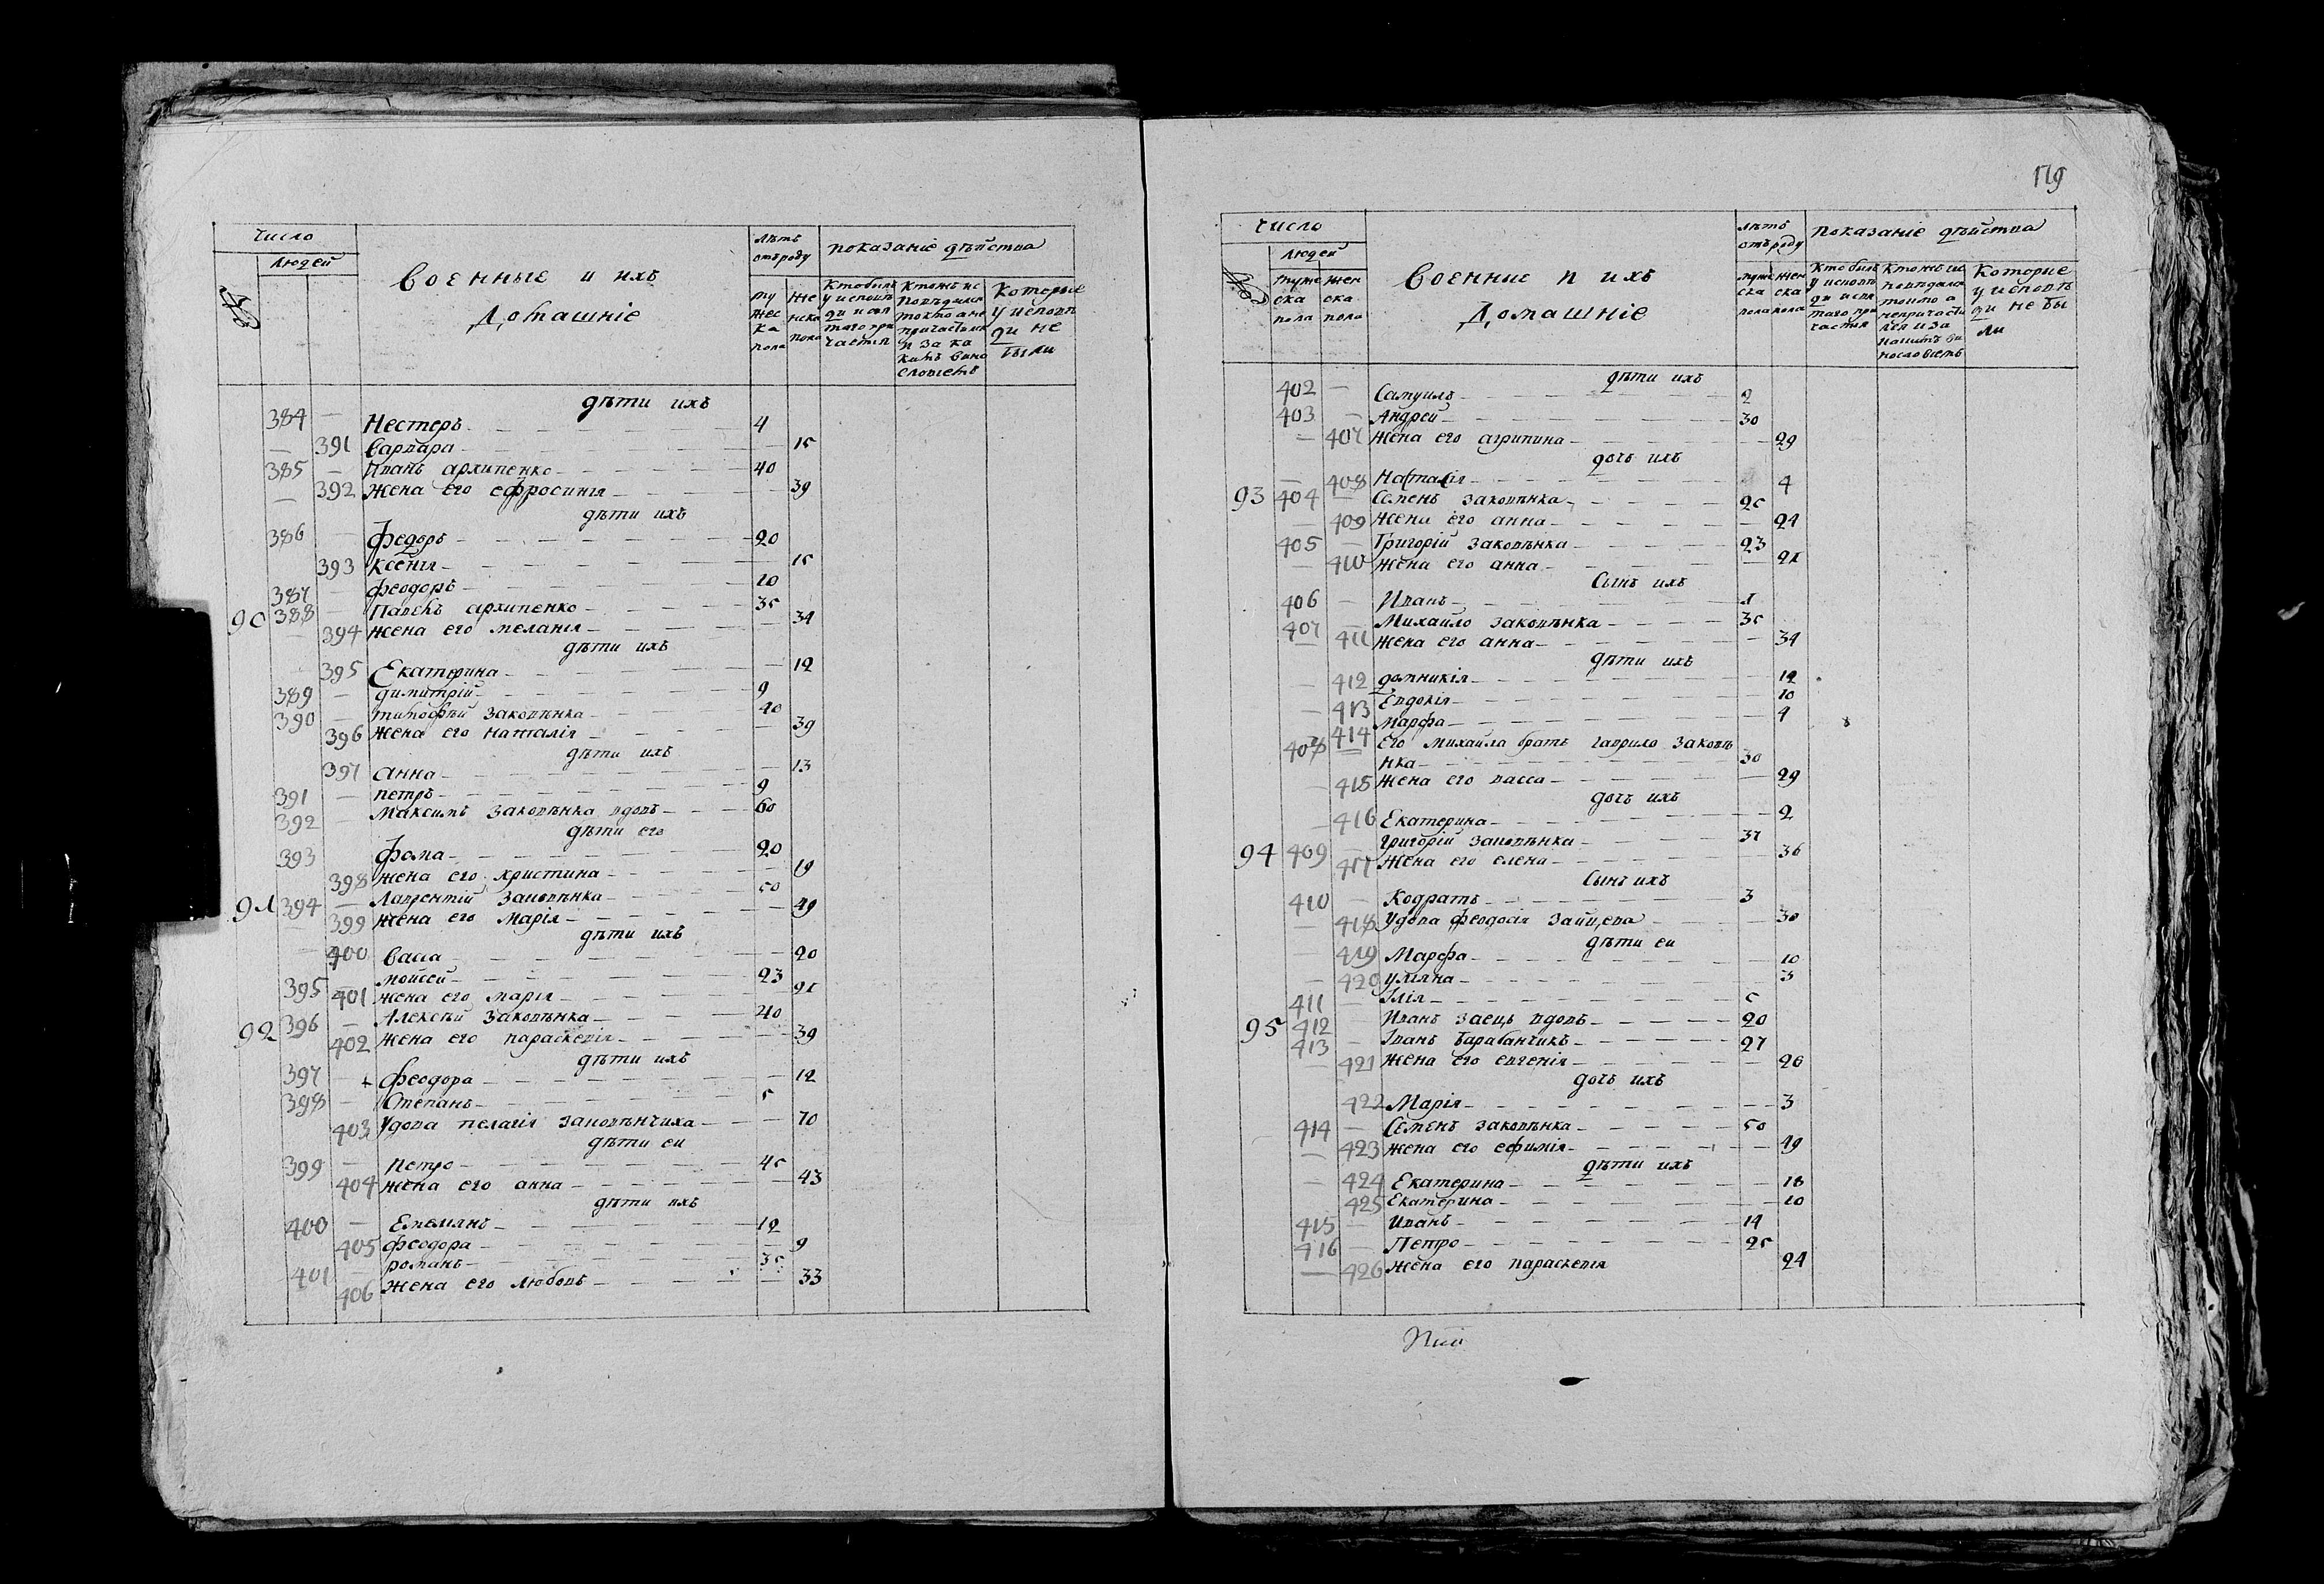 Число
Людей
№
Военные и ихъ
Домашніе
лѣтъ
отъ роду
показаніе дѣйства
му
жес
ка
пола
Же
нска
пола
Кто былъ
у исповѣ
ди и свя
таго при
частія
Ктожъ ис
повѣдался
токмо а не
причастилс
и за ка
кимъ вино
словіемъ
Которые
у исповѣ
ди не
были
дѣти ихъ
384 — Нестеръ 4
— 391 Варвара — 15
385 — Иванъ архипенко 40
— 392 Жена его ефросинія — 39
дѣти ихъ
386 — Федоръ 20
393 Ксенія — 15
387 — Феодоръ 10
90 388 — Павелъ архипенко 35
— 394 Жена его меланія — 34
дѣти ихъ
395 Екатерина — 12
389 — димитрій 9
390 — тимофѣй Заковѣнка 40
396 Жена его Наталія 39
дѣти ихъ
397 анна — 13
391 — петръ 9
392 — Максимъ Заковѣнка вдовъ 60
дѣти его
393 Фома 20
398 Жена его христина — 19
91 394 — Лаврентій Заковѣнка 50
— 399 Жена его Марія — 49
дѣти ихъ
— 400 Васса — 20
395 — мойсей 23
401 жена его марія — 21
92 396 — Алексѣй Заковѣнка 40
402 Жена его параскевія — 39
дѣти ихъ
397 — Феодора — 12
398 — Степанъ 5
403 Удова пелагія Заковѣнчиха — 70
дѣти еи
399 — Петро 45
404 Жена его анна — 43
дѣти ихъ
400 — Емелянъ 12
405 Феодора — 9
401 — романъ 35
406 Жена его любовъ — 33
179
Число
Людей
№
муже
ска
пола
жен
ска
пола
Военные и ихъ
Домашніе
лѣтъ
отъ роду
показаніе дѣйства
муже
ска
пола
жен
ска
пола
Кто былъ
у исповѣ
ди и свя
таго при
частія
Которие
у исповѣ
ди не бы
ли
дѣти ихъ
402 — Самуилъ 2
403 — Андрей 30
— 407 Жена его агрипина — 29
дочъ ихъ
— 408 Наталія 4
93 404 — Семенъ Заковѣнка 25
— 409 Жена его анна — 24
405 — Григорій Заковѣнка 23
— 410 Жена его анна — 21
Сынъ ихъ
406 — Иванъ 1
407 Михайло Заковѣнка 35
— 411 Жена его анна — 34
дѣти ихъ
— 412 домникія — 12
— 413 Евдокія — 10
414 Марфа — 4
408 — Его Михайла братъ гаврило Заковѣ
нка 30
— 415 Жена его васса — 29
дочъ ихъ
— 416 Екатерина — 2
94 409 — Григорій Заковѣнка 37
417 Жена его елена — 36
Сынъ ихъ
410 — Кодратъ 3
— 418 Удова феодосія Зайцева — 30
дѣти еи
— 419 Марфа — 10
— 420 уліяна — 3
411 — Ілія 5
95 412 — Иванъ Заецъ вдовъ 20
413 — Іванъ Барабанчикъ 27
— 421 Жена его евгенія — 26
дочъ ихъ
422 Марія — 3
414 — Семенъ Заковѣнка 50
— 423 Жена его ефимія — 49
дѣти ихъ
— 424 Екатерина — 18
425 Екатерина — 10
415 — Иванъ 14
416 — Петро 25
— 426 Жена его параскевія 24